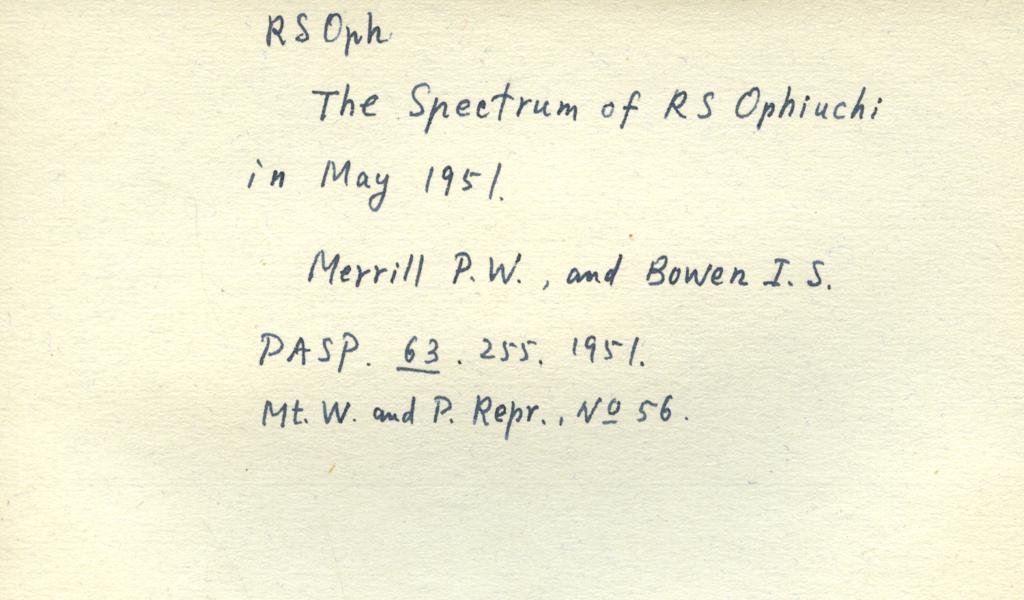 RS Oph
The Spectrum of RS Ophiuchi
in May 1951.
Merrill P.W., and Bowen I.S.
PASP. 63. 255. 1951.
Mt. W. and P. Repr., Nº 56.